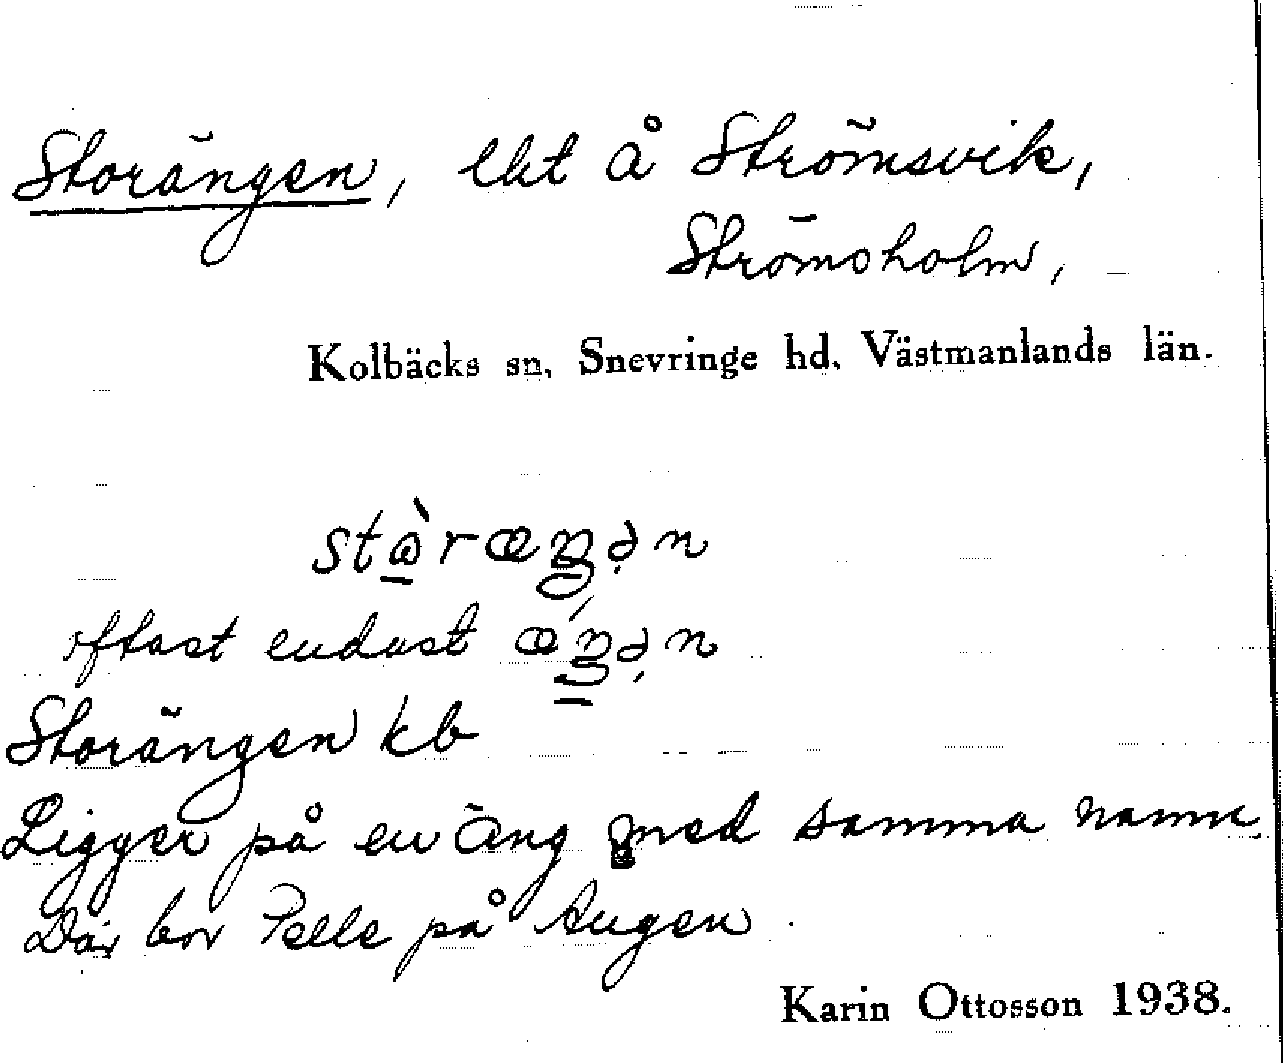 Storängen, lht å Strömsvik,
Strömsholm,
Kolbäcks sn, Snevringe hd, Västmanlands län.
oftast endast
Storängen kb
Ligger på en äng med samma namn
Där bor Pelle på Ängen.
Karin Ottosson 1938.